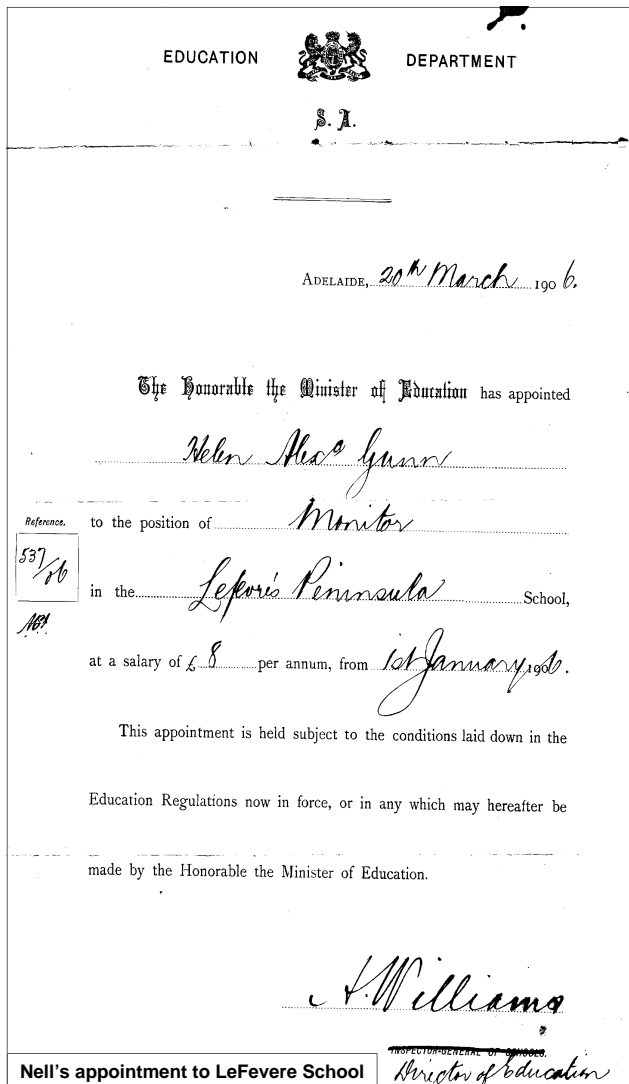 EDUCATION DEPARTMENT
S. A.
ADELAIDE, 20th March 1906.
The Honorable the Minister of Education has appointed
Helen Alexa Gunn
Reference. to the position of Monitor
537/06
in the Lefevre's Peninsula School,
at a salary of £ 8 per annum, from 1st January, 1906.
This appointment is held subject to the conditions laid down in the
Education Regulations now in force, or in any which may hereafter be
made by the Honorable the Minister of Education.
A. Williams
INSPECTOR-GENERAL OF SCHOOLS.
Director of Education
Nell's appointment to LeFevere School